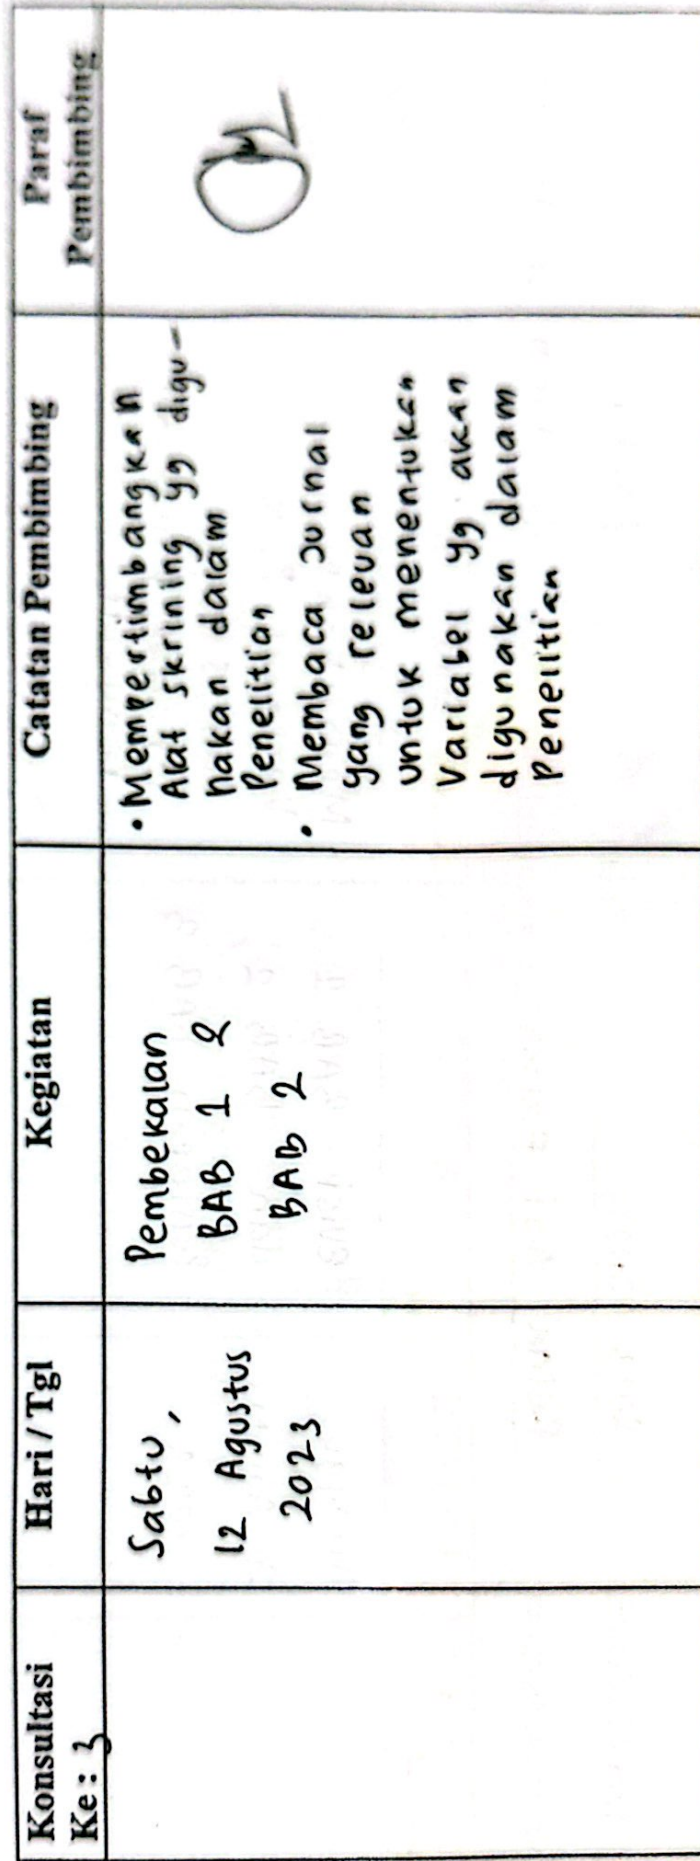 Konsultasi
Ke : 3
Hari / Tgl
Kegiatan
Catatan Pembimbing
Paraf
Pembimbing
Sabtu,
12 Agustus
2023
Pembekalan
BAB 1 &
BAB 2
• Mempertimbangkan
Alat skrining yg digu-
nakan dalam
Penelitian
• Membaca Jurnal
yang relevan
untuk menentukan
Variabel yg akan
digunakan dalam
penelitian